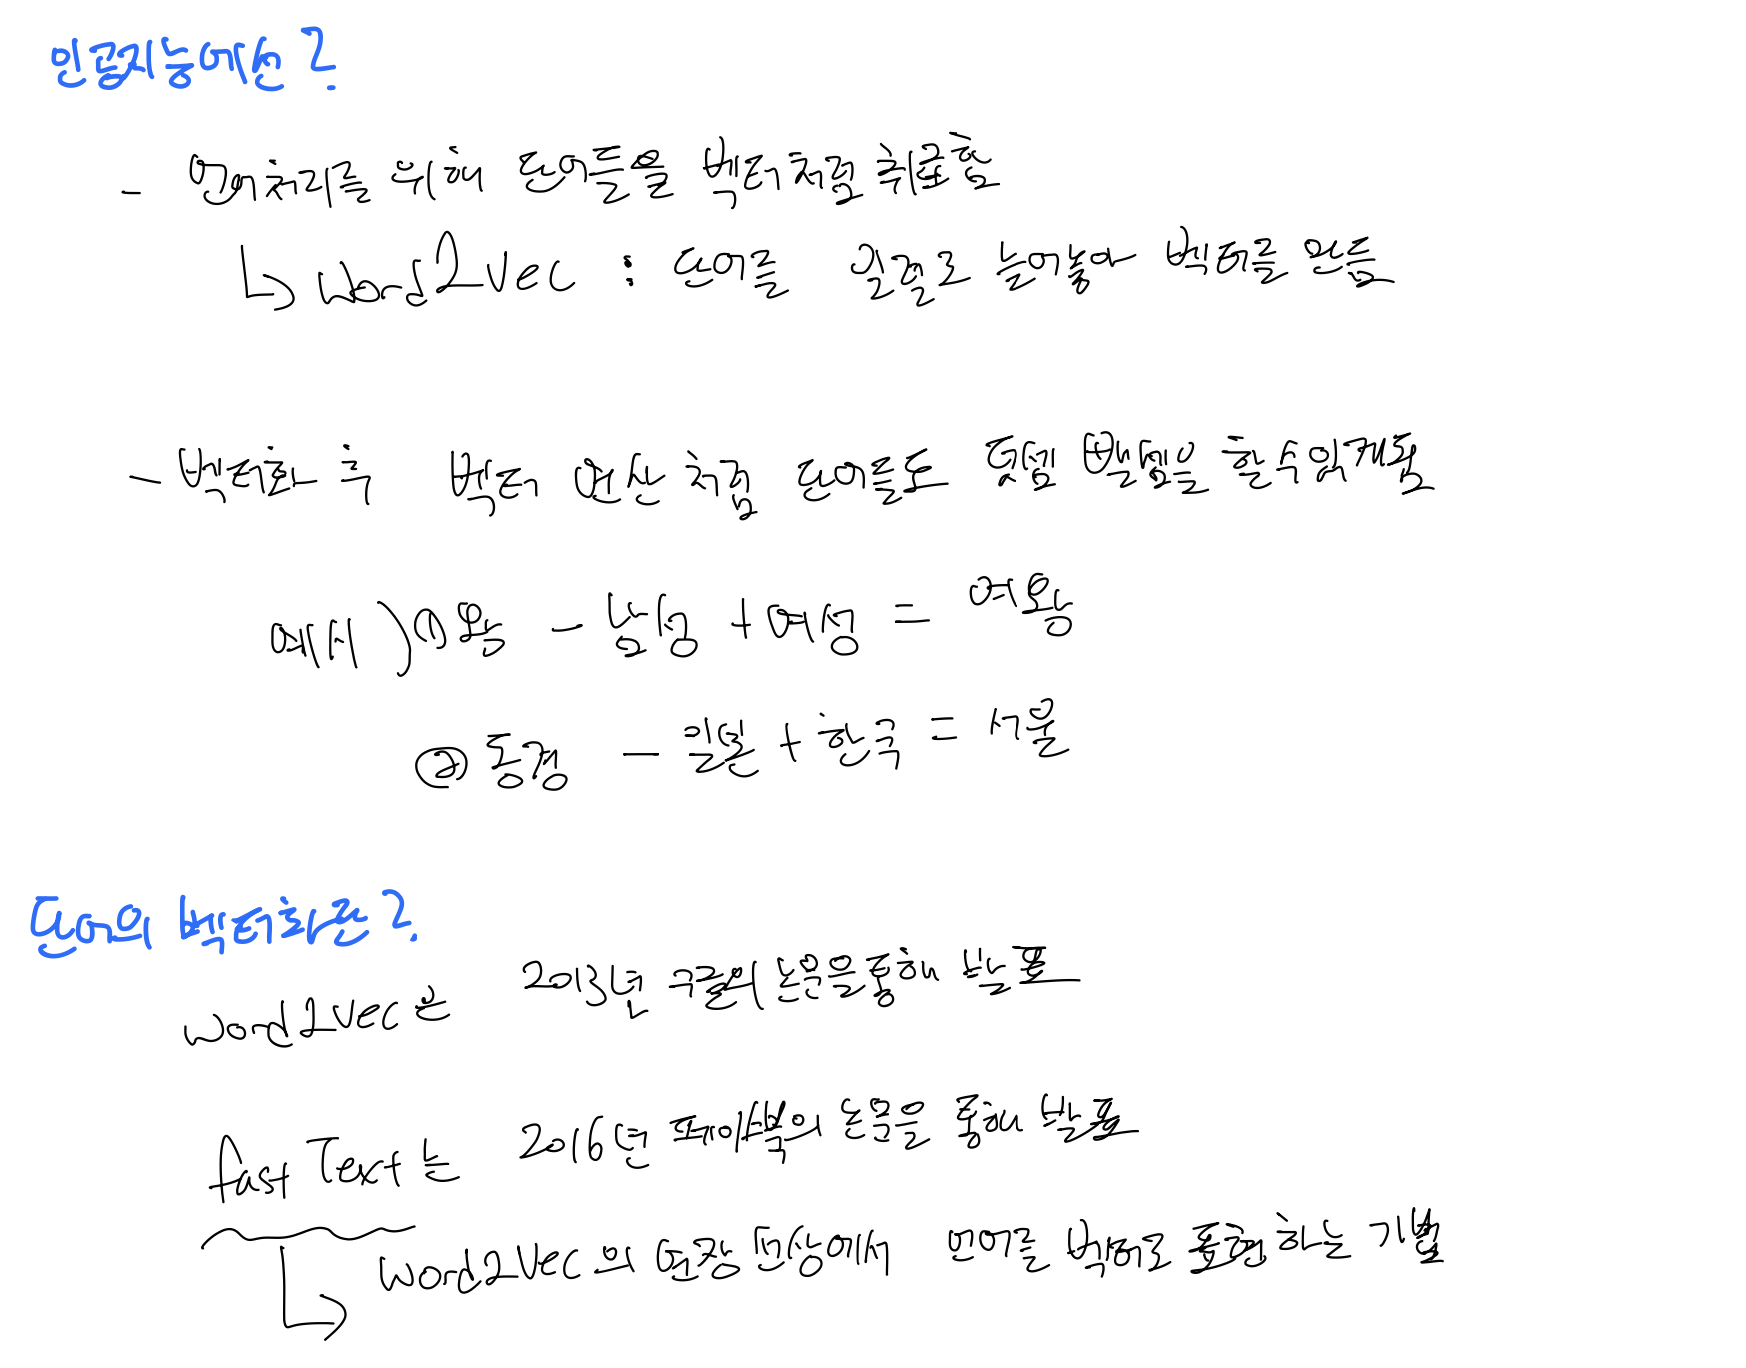 인공지능에선?
- 언어처리를 위해 단어들을 벡터처럼 취급함
↳ word2vec : 단어를 일렬로 늘어놓아 벡터를 만듦
- 벡터화 후 벡터 연산 처럼 단어들도 덧셈 뺄셈을 할 수 있게됨
예시) ① 왕 - 남성 + 여성 = 여왕
② 동경 - 일본 + 한국 = 서울
단어의 벡터화란?
word2vec은 2013년 구글의 논문을 통해 발표
fast Text는 2016년 페이스북의 논문을 통해 발표
↳ word2vec의 연장 선상에서 언어를 벡터로 표현하는 기법